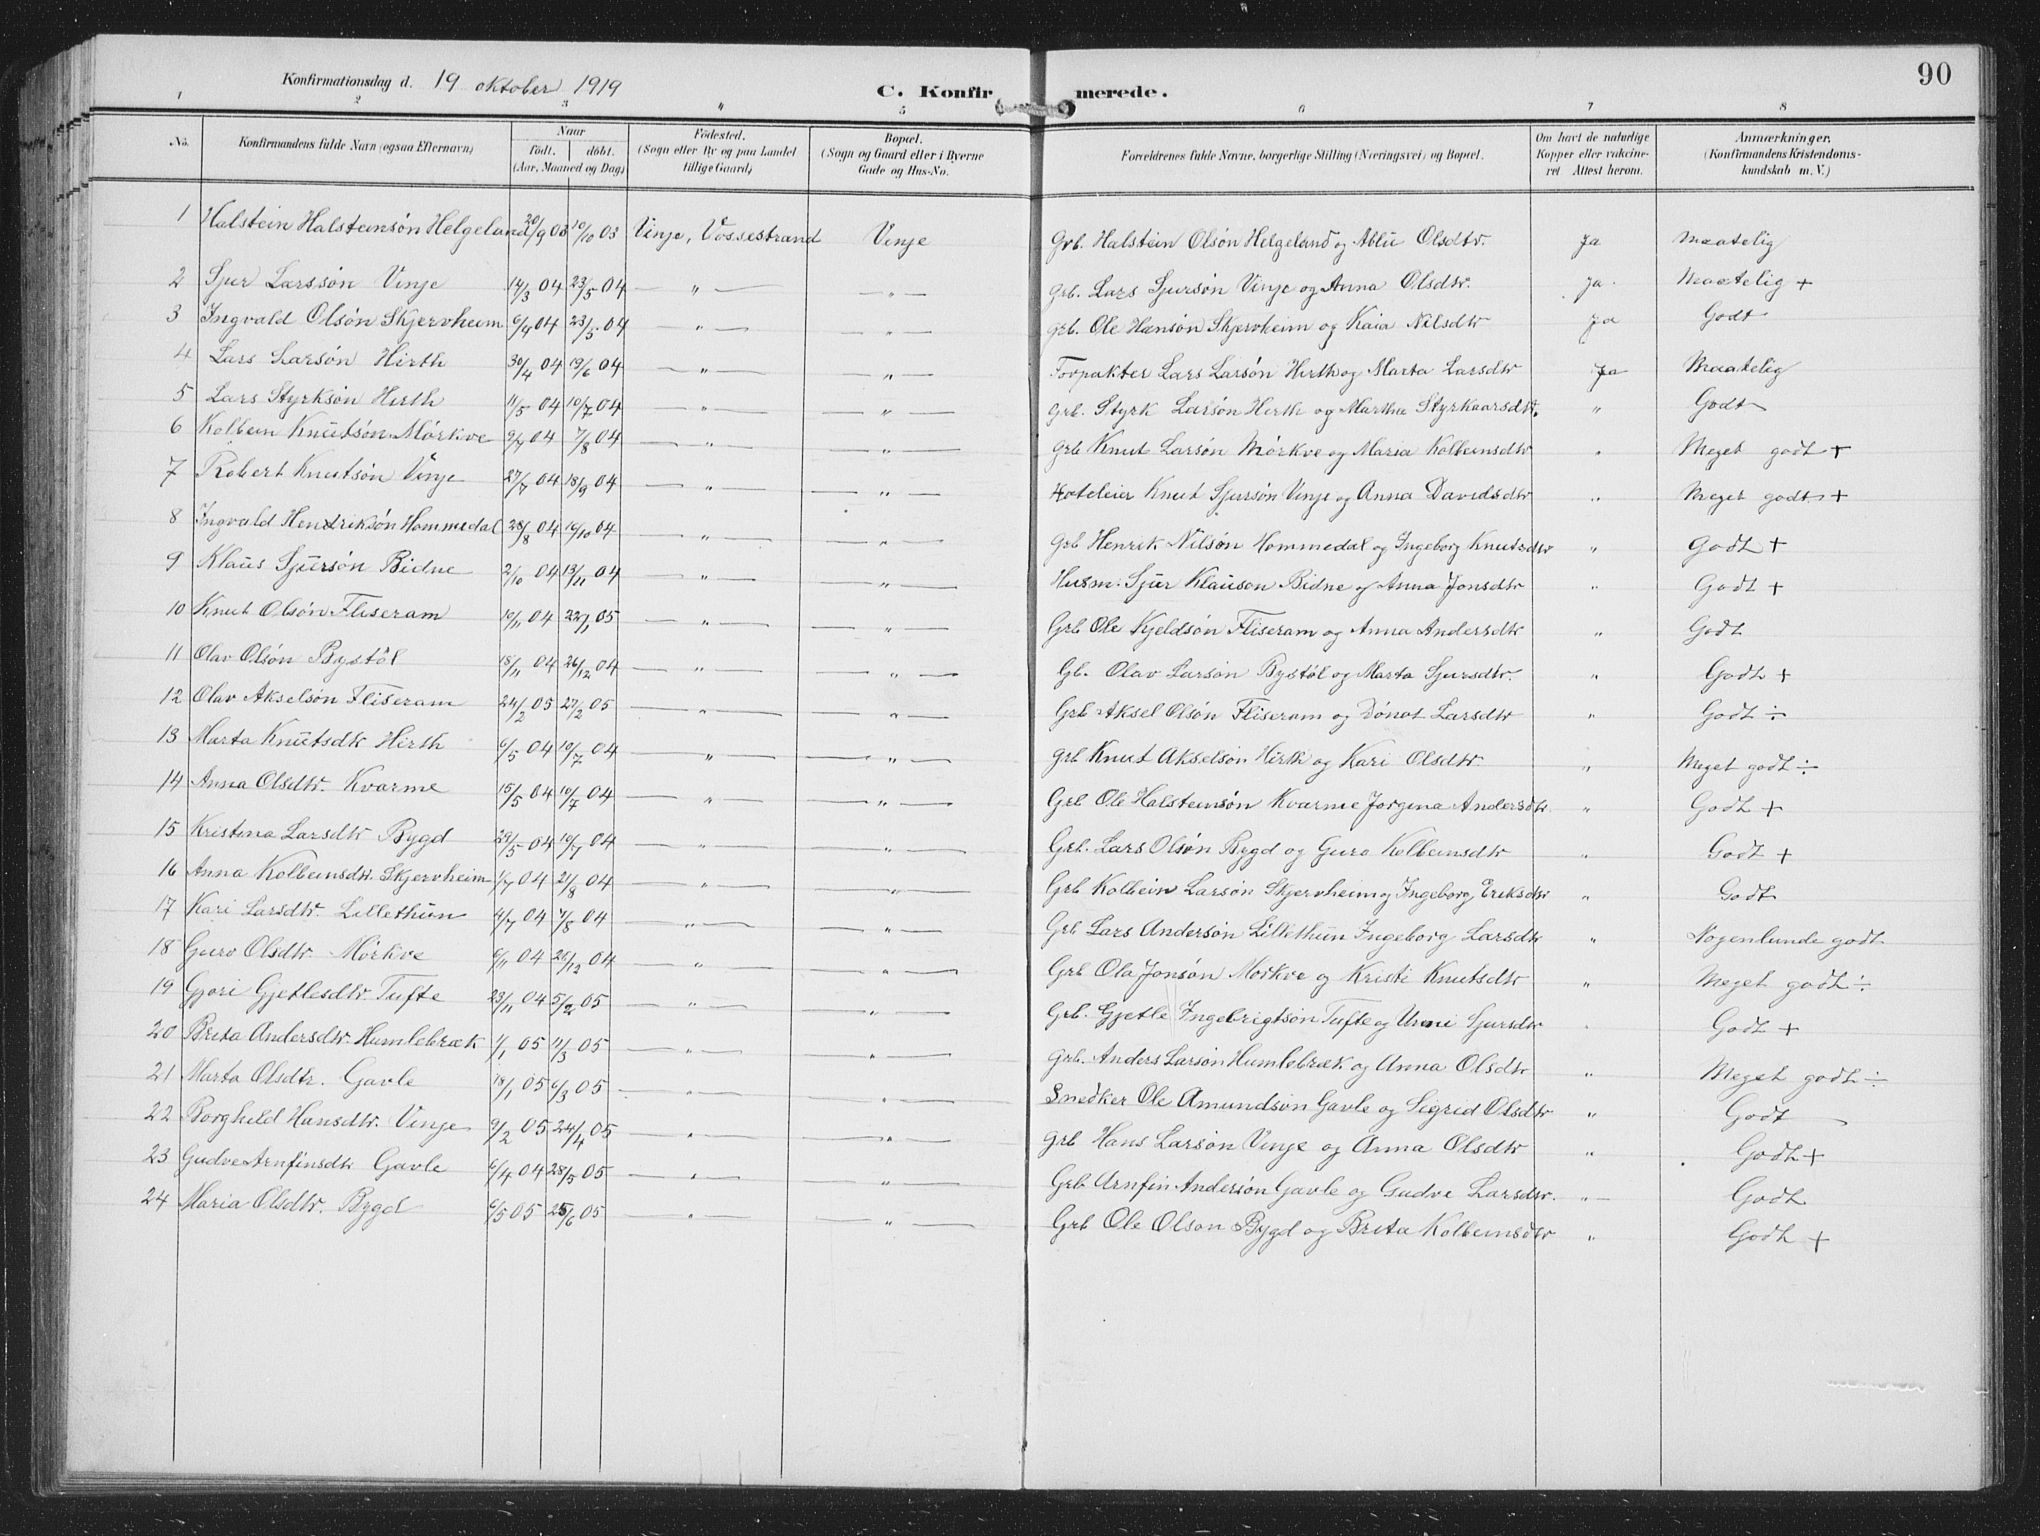 90
Konfirmationsdag d. 19 oktober 1919 C. Konfirmerede.
1 2 3 " 5 6 7 8
No. Konfirmandens fulde Navn (ogsaa Efternavn) Naar født. døbt. (Aar, Maaned og Dag) Fødested. (Sogn eller By og paa Landet tillige Gaard) Bopæl. (Sogn og Gaard eller i Byerne Gade og Hus-No. Forældrenes fulde Navne, borgerlige Stilling (Næringsvei) og Bopæl. Om havt de naturlige Kopper eller vakcineret Attest herom. Anmærkninger. (Konfirmandens Kristendomskundskab m. V.)
1 Halstein Halsteinsön Helgeland 20/9 03 10/10 03 Vinje, Vossestrand Vinje Grb. Halstein Olsön Helgeland og Ablu Olsdtr. Ja Maatelig
2 Sjur Larssön Vinje 14/3 04 23/5 04 — " — — " — Grb. Lars Sjursön Vinje og Anna Olsdtr. Ja Maatelig +
3 Ingvald Olsön Skjervheim 6/4 04 23/5 04 — " — — " — Grb. Ole Hansön Skjervheim og Kaia Nilsdtr Ja Godt
4 Lars Larsön Hirth 30/4 04 19/6 04 — " — — " — Forpakter Lars Larsön Hirth og Marta Larsdtr Ja Maatelig
5 Lars Styrksön Hirth 11/5 04 10/7 04 — " — — " — Grb. Styrk Larsön Hirth og Martha Styrkaarsdtr. " Godt
6 Kolbein Knutsön Mörkve 9/7 04 7/8 04 — " — — " — Grb Knut Larsön Mörkve og Maria Kolbeinsdtr " Meget godt +
7 Robert Knutsön Vinje 27/7 04 18/9 04 — " — — " — Hoteleier Knut Sjursön Vinje og Anna Davidsdtr " Meget godt +
8 Ingvald Hendriksön Hommedal 28/8 04 16/10 04 — " — — " — Grb Henrik Nilsön Hommedal og Ingeborg Knutsdtr " Godt +
9 Klaus Sjursön Bidne 2/10 04 13/11 04 — " — — " — Husm: Sjur Klauson Bidne og Anna Jonsdtr " Godt +
10 Knut Olsön Fliseram 10/11 04 22/1 05 — " — — " — Grb Ole Kjeldsön Fliseram og Anna Andersdtr " Godt
11 Olav Olsön Bystöl 18/11 04 26/12 04 — " — — " — Gb. Olav Larsön Bystöl og Marta Sjursdtr. " Godt +
12 Olav Akselsön Fliseram 24/2 05 27/2 05 — " — — " — Grb Aksel Olsön Fliseram og Dönot Larsdtr " Godt ÷
13 Marta Knutsdtr Hirth 6/5 04 10/7 04 — " — — " — Grb Knut Akselsön Hirth og Kari Olsdtr. " Meget godt ÷
14 Anna Olsdtr. Kvarme 15/5 04 10/7 04 — " — — " — Grb Ole Halsteinsön Kvarme Jorgina Andersdtr. " Godt +
15 Kristina Larsdtr Bygd 29/5 04 10/7 04 — " — — " — Grb. Lars Olsön Bygd og Guro Kolbeinsdtr " Godt +
16 Anna Kolbeinsdtr. Skjervheim 1/7 04 21/8 04 — " — — " — Grb Kolbein Larsön Skjervheim og Ingeborg Eriksdtr " Godt
17 Kari Larsdtr. Lillethun 4/7 04 7/8 04 — " — — " — Grb Lars Andersön Lillethun Ingeborg Larsdtr " Nogenlunde godt
18 Guro Olsdtr. Mörkve 6/11 04 26/12 04 — " — — " — Grb Ola Jonsön Mörkve og Kristi Knutsdtr " Meget godt ÷
19 Gjori Gjetlesdtr. Tufte 23/11 04 5/2 05 — " — — " — Grb. Gjetle Ingebrigtsön Tufte og Unni Sjursdtr " Godt +
20 Brita Andersdtr. Humlebræk 1/1 05 11/3 05 — " — — " — Grb. Anders Larsön Humlebræk og Anna Olsdtr " Meget godt ÷
21 Marta Olsdtr. Gavle 18/1 05 6/3 05 — " — — " — Snedker Ole Amundsön Gavle og Sigrid Olsdtr " Godt
22 Borghild Hansdtr. Vinje 9/2 05 24/4 05 — " — — " — Grb Hans Larsön Vinje og Anna Olsdtr " Godt +
23 Gudve Arnfinsdtr Gavle 6/4 04 28/5 05 — " — — " — Grb Arnfin Andersön Gavle og Gudve Larsdtr. " Godt
24 Maria Olsdtr. Bygd 6/5 05 25/6 05 — " — — " — Grb Ole Olson Bygd og Brita Kolbeinsdtr " Godt +